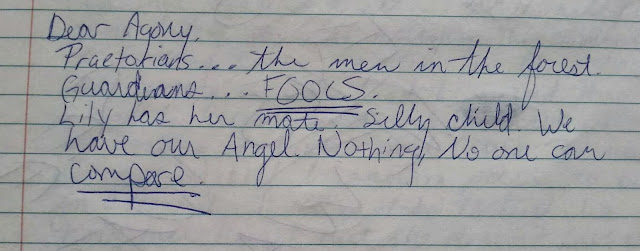 Dear Agony.
Praetorians... the men in the forest.
Guardians... FOOLS.
Lily has her mate. Silly child. We
have our Angel. Nothing, No one can
compare.